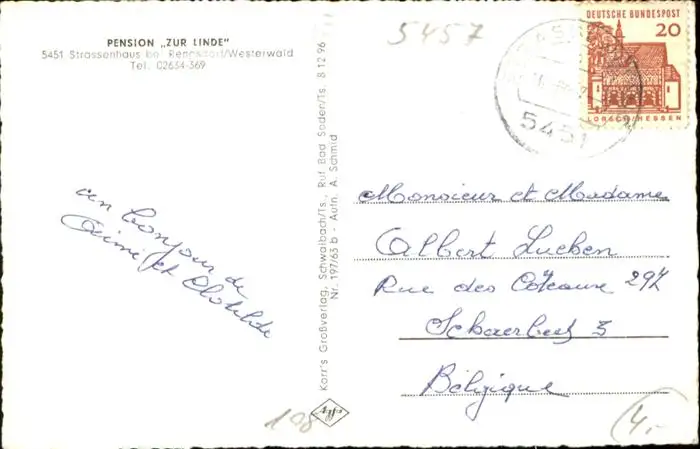 PENSION „ZUR LINDE"
5451 Strassenhaus bei Rengsdorf/Westerwald
Tel. 02634-369
un bonjour de
Mimi et Clotilde
Korr's Großverlag, Schwalbach/Ts., Ruf Bad Soden/Ts. 8 12 96
Nr. 197/63 b - Aufn. A. Schmid
Agfa
108
5457
5451
DEUTSCHE BUNDESPOST
20
LORSCH/HESSEN
Monsieur et Madame
Albert Lucken
Rue des Coteaux 297
Schaerbeek 3
Belgique
4,-